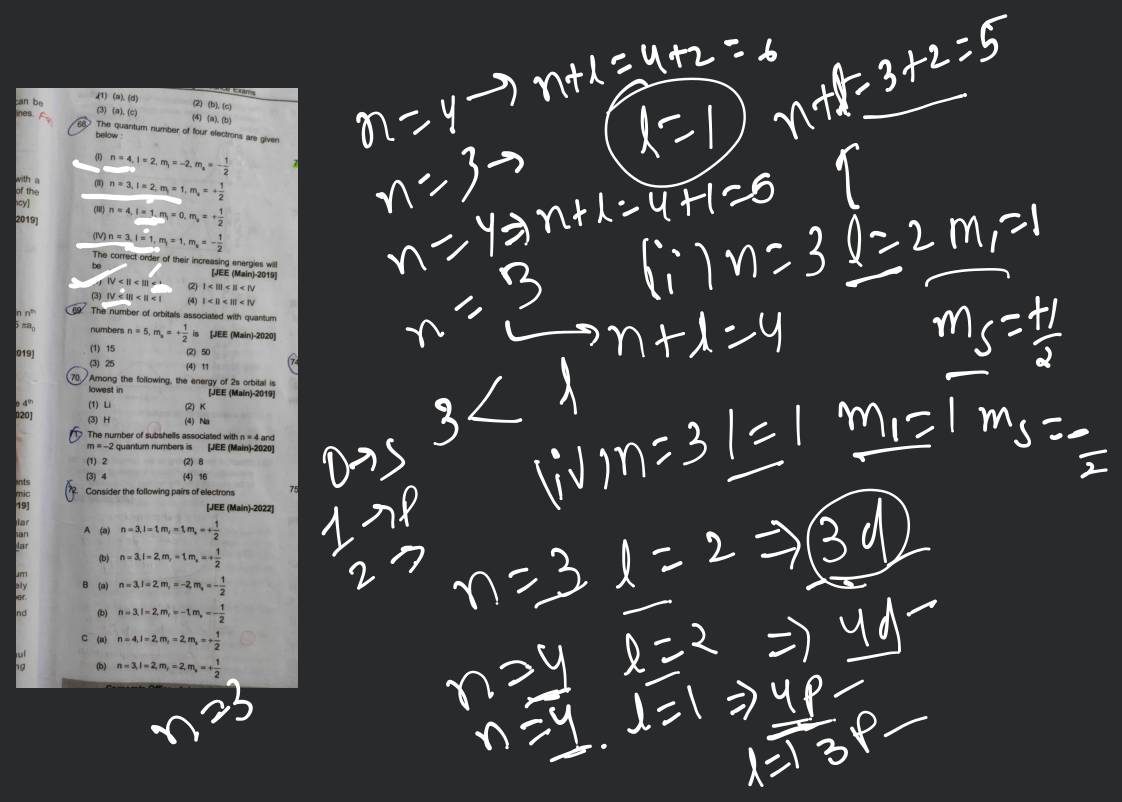 ance Exams
(1) (a), (d)
(2) (b), (c)
(3) (a), (c)
(4) (a), (b)
68. The quantum number of four electrons are given
below :
(I) n = 4, l = 2, mₗ = –2, mₛ = –1/2
(II) n = 3, l = 2, mₗ = 1, mₛ = +1/2
(III) n = 4, l = 1, mₗ = 0, mₛ = +1/2
(IV) n = 3, l = 1, mₗ = 1, mₛ = –1/2
The correct order of their increasing energies will
be
[JEE (Main)-2019]
IV < II < III <
(2) I < III < II < IV
(3) IV < III < II < I
(4) I < II < III < IV
69. The number of orbitals associated with quantum
numbers n = 5, mₛ = +1/2 is [JEE (Main)-2020]
(1) 15
(2) 50
(3) 25
(4) 11
70. Among the following, the energy of 2s orbital is
lowest in
[JEE (Main)-2019]
(1) Li
(2) K
(3) H
(4) Na
71. The number of subshells associated with n = 4 and
m = –2 quantum numbers is [JEE (Main)-2020]
(1) 2
(2) 8
(3) 4
(4) 16
72. Consider the following pairs of electrons
[JEE (Main)-2022]
A (a) n = 3, l = 1, mₗ = 1, mₛ = +1/2
(b) n = 3, l = 2, mₗ = 1, mₛ = +1/2
B (a) n = 3, l = 2, mₗ = –2, mₛ = –1/2
(b) n = 3, l = 2, mₗ = –1, mₛ = –1/2
C (a) n = 4, l = 2, mₗ = 2, mₛ = +1/2
(b) n = 3, l = 2, mₗ = 2, mₛ = +1/2
can be
ines.
with a
of the
ncy]
2019]
n nᵗʰ
5 πa₀
019]
e 4ᵗʰ
020]
ents
mic
19]
lar
nan
lar
um
ely
er.
nd
ul
ng
74
75
n=3
n=4 → n+l=4+2=6
l=1
n+l=3+2=5
n=3→
n=4⇒n+l=4+1=5
n=3
→n+l=4
(ii) n=3 l=2 m₁=1
mₛ=+1/2
3< l
(iv) n=3 l=1 m₁=1 mₛ=-/2
0→s
1→p
2→
n=3 l=2 ⇒ 3d
n=4 l=2 ⇒ 4d
n=4. l=1 ⇒ 4p
l=1 3p